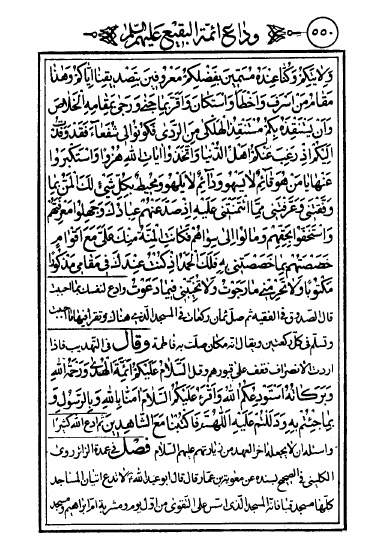 ٥٥٠ وداع ائمة البقيع عليهم السلم
ولايتكم وكنا عنده مسمين بفضلكم معروفين بتصديقنا اياكم وهذا
مقام من اسرف واخطأ واستكان واقر بما جنى ورجى بمقامه الخلاص
وان يستنقذه بكم مستنقذ الهلكى من الردى فكونوا لى شفعاء فقد وفدت
اليكم اذ رغب عنكم اهل الدنيا واتخذوا ايات الله هزوا واستكبروا
عنها يا من هو قائم لا يسهو ودائم لا يلهو ومحيط بكل شئ لك المن بما
وفقتنى وعرفتنى بما ائتمنتنى عليه اذ صد عنهم عبادك وجهلوا معرفتهم
واستخفوا بحقهم ومالوا الى سواهم فكانت المنة منك على مع اقوام
خصصتهم بما خصصتنى به فلك الحمد اذ كنت عندك فى مقامى مذكورا
مكتوبا ولا تحرمنى ما رجوت ولا تخيبنى فيما دعوت وادع لنفسك بما احببت
قال الصدوق فى الفقيه ثم صل ثمان ركعات فى المسجد الذى هناك وتقرأ فيها ما احببت
وتسلم فى كل ركعتين ويقال انه مكان صلت به فاطمة وقال فى التهذيب فاذا
اردت الانصراف فقف على قبورهم وقل السلام عليكم ائمة الهدى ورحمة الله
وبركاته استودعكم الله واقرء عليكم السلام امنا بالله وبالرسول و
بما جئتم به ودللتم عليه اللهم فاكتبنا مع الشاهدين ثم ادع الله كثيرا
واسئله ان لا يجعله اخر العهد من زيارتهم عليهم السلام فصل فى عمدة الزائر روى
الكلينى فى الصحيح بسنده عن معوية بن عمار قال قال ابو عبد الله لا تدع اتيان المساجد
كلها مسجد قبا فانه المسجد الذى اسس على التقوى من اول يوم ومشربة ام ابراهيم ومسجد